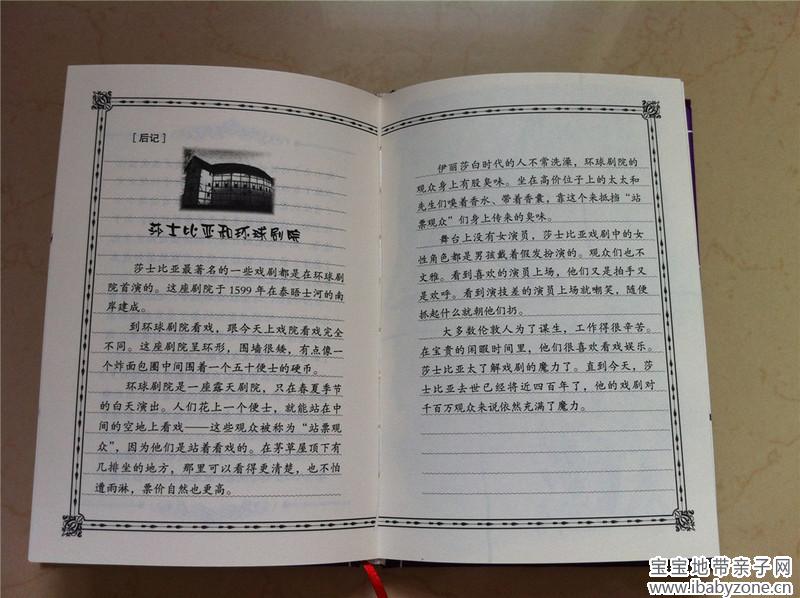 [后记]
莎士比亚和环球剧院
莎士比亚最著名的一些戏剧都是在环球剧
院首演的。这座剧院于1599年在泰晤士河的南
岸建成。
到环球剧院看戏，跟今天上戏院看戏完全
不同。这座剧院呈环形，围墙很矮，有点像一
个炸面包圈中间围着一个五十便士的硬币。
环球剧院是一座露天剧院，只在春夏季节
的白天演出。人们花上一个便士，就能站在中
间的空地上看戏——这些观众被称为“站票观
众”，因为他们是站着看戏的。在茅草屋顶下有
几排坐的地方，那里可以看得更清楚，也不怕
遭雨淋，票价自然也更高。
伊丽莎白时代的人不常洗澡，环球剧院的
观众身上有股臭味。坐在高价位子上的太太和
先生们嗅着香水、带着香囊，靠这个来抵挡“站
票观众”们身上传来的臭味。
舞台上没有女演员，莎士比亚戏剧中的女
性角色都是男孩戴着假发扮演的。观众们也不
文雅。看到喜欢的演员上场，他们又是拍手又
是欢呼。看到演技差的演员上场就嘲笑，随便
抓起什么就朝他们扔。
大多数伦敦人为了谋生，工作得很辛苦。
在宝贵的闲暇时间里，他们很喜欢看戏娱乐。
莎士比亚太了解戏剧的魔力了。直到今天，莎
士比亚去世已经将近四百年了，他的戏剧对
千百万观众来说依然充满了魔力。
宝宝地带亲子网
www.ibabyzone.cn